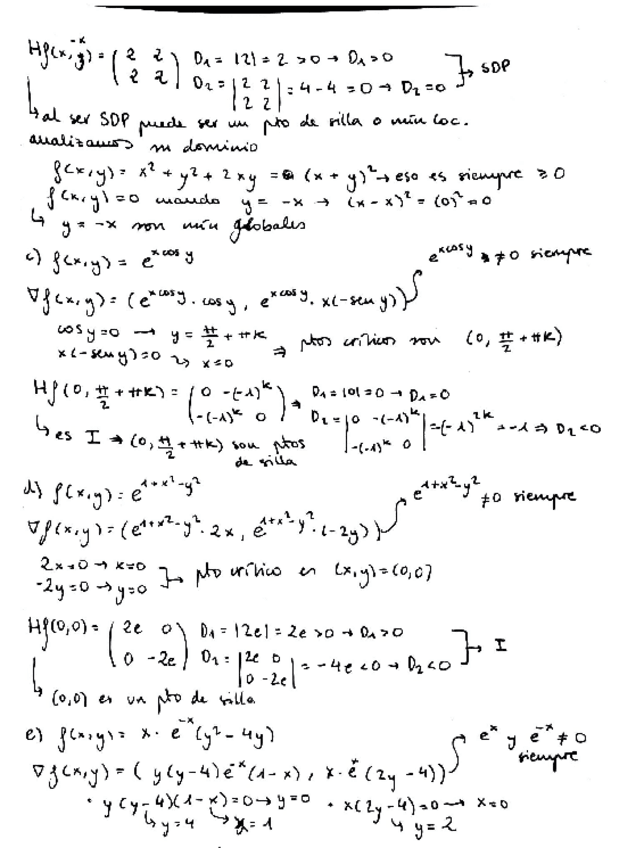 Hf(x, -x) = (2 2; 2 2) D₁ = |2| = 2 > 0 → D₁ > 0
D₂ = |2 2; 2 2| = 4 - 4 = 0 → D₂ = 0 → SDP
↳ al ser SDP puede ser un pto de silla o mín loc.
analizamos su dominio
f(x,y) = x² + y² + 2xy = (x + y)² → eso es siempre ≥ 0
f(x,y) = 0 cuando y = -x → (x - x)² = (0)² = 0
↳ y = -x son mín globales
c) f(x,y) = e^(x cos y)
e^(x cos y) ≠ 0 siempre
∇f(x,y) = (e^(x cos y) · cos y, e^(x cos y) · x(-sen y))
cos y = 0 → y = π/2 + πk
x(-sen y) = 0 ↝ x = 0 ⇒ ptos críticos son (0, π/2 + πk)
Hf(0, π/2 + πk) = (0 -(-1)^k; -(-1)^k 0) → D₁ = |0| = 0 → D₁ = 0
D₂ = |0 -(-1)^k; -(-1)^k 0| = -(-1)^(2k) = -1 ⇒ D₂ < 0
↳ es I → (0, π/2 + πk) son ptos
de silla
d) f(x,y) = e^(1+x²-y²)
e^(1+x²-y²) ≠ 0 siempre
∇f(x,y) = (e^(1+x²-y²) · 2x, e^(1+x²-y²) · (-2y))
2x = 0 → x = 0
-2y = 0 → y = 0 → pto crítico es (x,y) = (0,0)
Hf(0,0) = (2e 0; 0 -2e) D₁ = |2e| = 2e > 0 → D₁ > 0
D₂ = |2e 0; 0 -2e| = -4e < 0 → D₂ < 0 → I
↳ (0,0) es un pto de silla
e) f(x,y) = x · e^(-x) (y² - 4y)
e^x y e^(-x) ≠ 0
siempre
∇f(x,y) = (y(y-4)e^(-x)(1-x), x · e^(-x) (2y - 4))
· y(y-4)(1-x) = 0 → y = 0 · x(2y-4) = 0 → x = 0
↳ y = 4 ↳ x = 1 ↳ y = 2